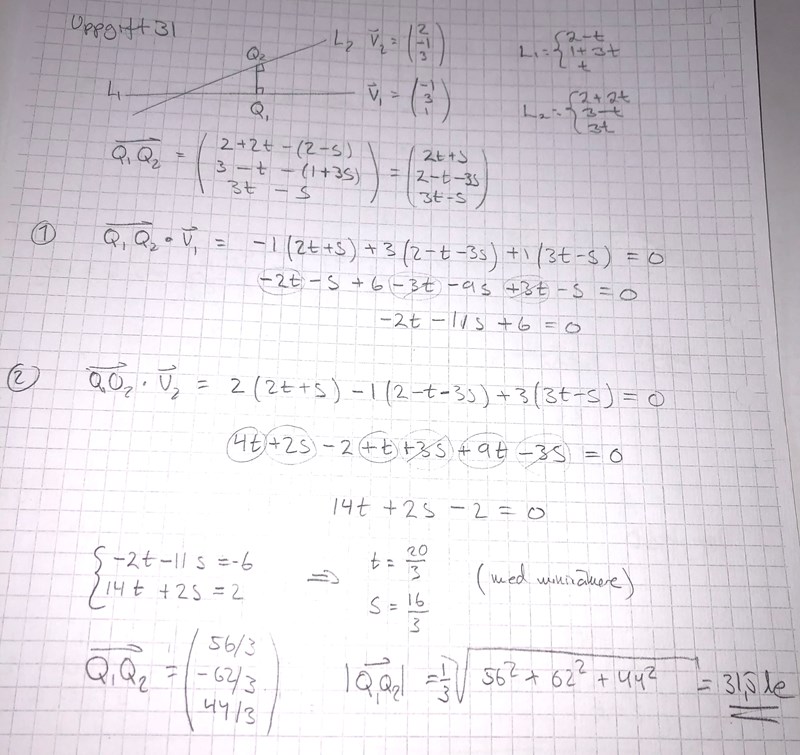 Uppgift 31
L₁ L₂ Q₂ Q₁
V⃗₂ = (2 -1 3)
V⃗₁ = (-1 3 1)
L₁ = { 2-t 1+3t t
L₂ = { 2+2t 3-t 3t
Q₁Q₂ = (2+2t-(2-s) 3-t-(1+3s) 3t-s) = (2t+s 2-t-3s 3t-s)
① Q₁Q₂ • V⃗₁ = -1(2t+s)+3(2-t-3s)+1(3t-s) = 0
-2t-s+6-3t-9s+3t-s = 0
-2t-11s+6 = 0
② Q₁Q₂ · V⃗₂ = 2(2t+s)-1(2-t-3s)+3(3t-s) = 0
4t+2s-2+t+3s+9t-3s = 0
14t+2s-2 = 0
{ -2t-11s = -6 14t+2s = 2 ⇒ t = 20/3 s = 16/3 (med miniräknare)
Q₁Q₂ = (56/3 -62/3 44/3) |Q₁Q₂| = 1/3 √(56²+62²+44²) = 31,5 le